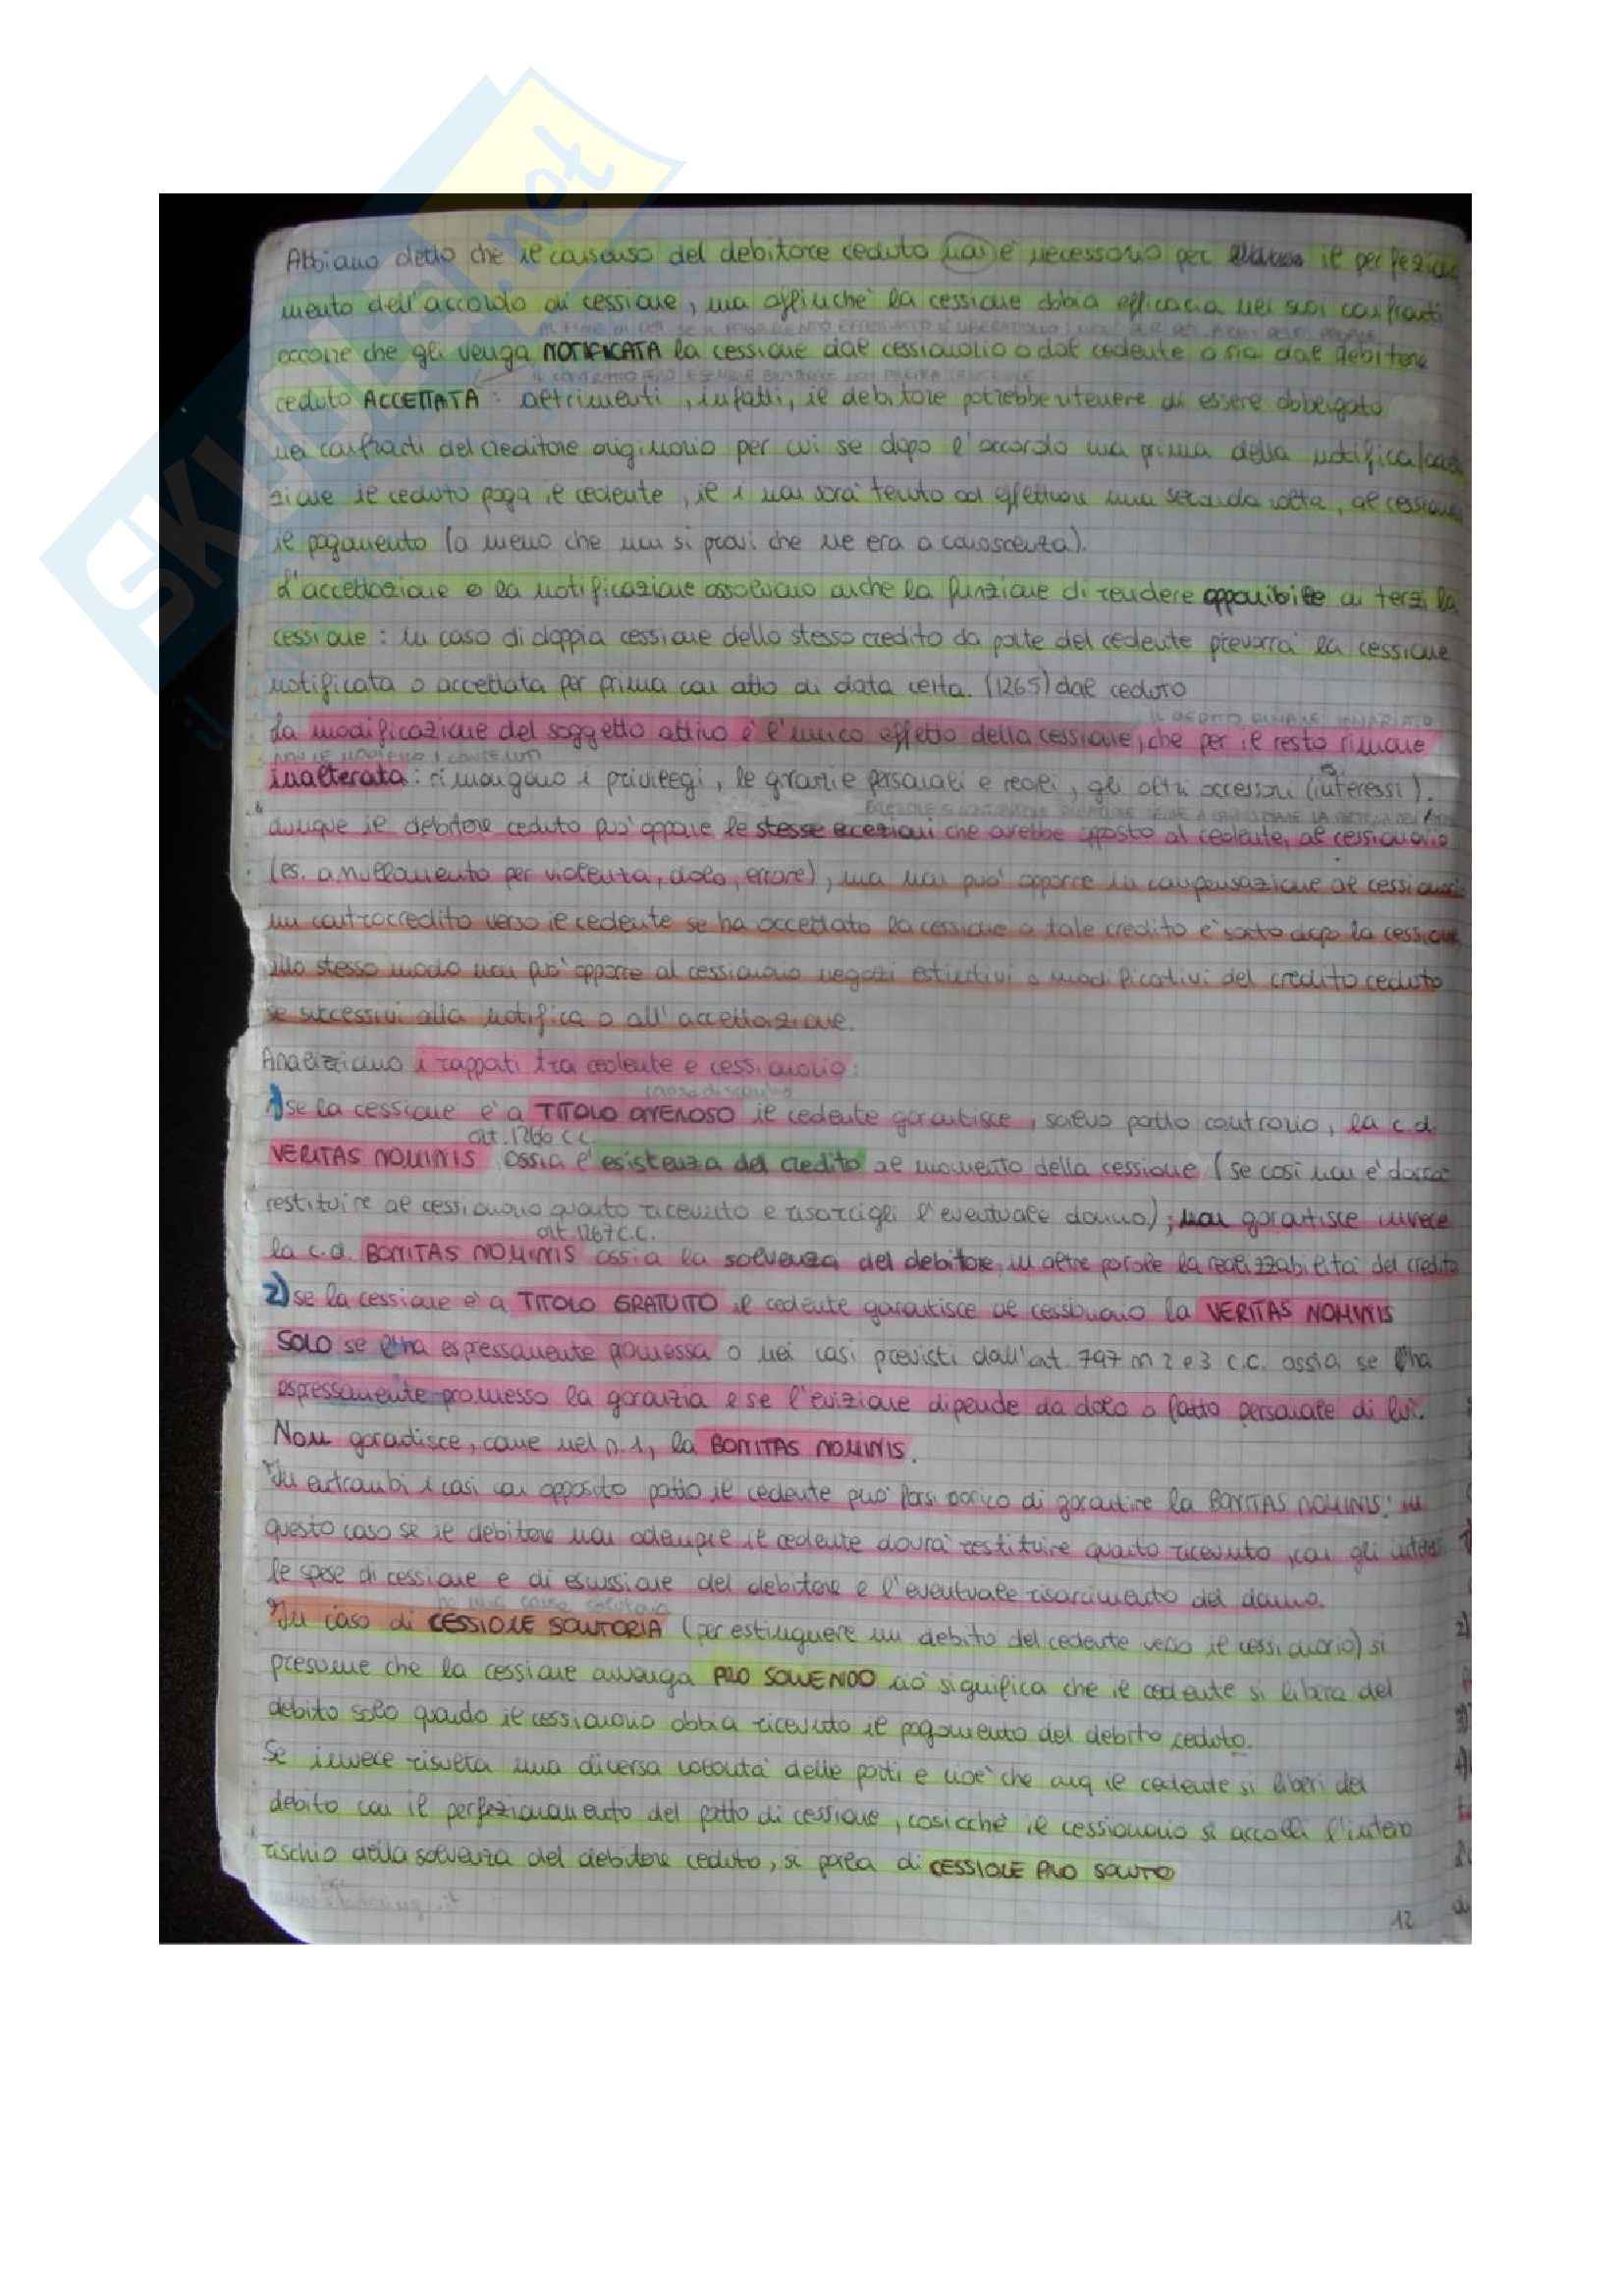 SKUOLA.net
Abbiamo detto che il consenso del debitore ceduto non è necessario per il perfezio
mento dell'accordo di cessione, ma affinché la cessione abbia efficacia nei suoi confronti
occorre che gli venga NOTIFICATA la cessione dal cessionario o dal cedente o sia dal debitore
ceduto ACCETTATA: altrimenti, infatti, il debitore potrebbe ritenere di essere obbligato
nei confronti del creditore originario per cui se dopo l'accordo ma prima della notifica/accetta
zione il ceduto paga il cedente, il 1 non sarà tenuto ad effettuare una seconda volta, al cessionario
il pagamento (a meno che non si provi che ne era a conoscenza).
L'accettazione o la notificazione assolvono anche la funzione di rendere opponibile ai terzi la
cessione: in caso di doppia cessione dello stesso credito da parte del cedente prevarrà la cessione
notificata o accettata per prima con atto di data certa. (1265) dal ceduto
IL CREDITO RIMANE INVARIATO
La modificazione del soggetto attivo è l'unico effetto della cessione, che per il resto rimane
inalterata: rimangono i privilegi, le garanzie personali e reali, gli altri accessori (interessi).
dunque il debitore ceduto può opporre le stesse eccezioni che avrebbe opposto al cedente, al cessionario
(es. annullamento per violenza, dolo, errore), ma non può opporre in compensazione al cessionario
un controcredito verso il cedente se ha accettato la cessione o tale credito è sorto dopo la cessione,
allo stesso modo non può opporre al cessionario negozi estintivi o modificativi del credito ceduto
se successivi alla notifica o all'accettazione.
Analizziamo i rapporti tra cedente e cessionario:
causa di scambio
1) se la cessione è a TITOLO ONEROSO il cedente garantisce, salvo patto contrario, la c.d.
art. 1266 c.c.
VERITAS NOMINIS ossia l'esistenza del credito al momento della cessione (se così non è dovrà
restituire al cessionario quanto ricevuto e risarcirgli l'eventuale danno); non garantisce invece
art. 1267 c.c.
la c.d. BONITAS NOMINIS ossia la solvenza del debitore, in altre parole la realizzabilità del credito
2) se la cessione è a TITOLO GRATUITO il cedente garantisce al cessionario la VERITAS NOMINIS
SOLO se l'ha espressamente promessa o nei casi previsti dall'art. 797 n 2 e 3 c.c. ossia se l'ha
espressamente promesso la garanzia e se l'evizione dipende da dolo o fatto personale di lui.
Non garantisce, come nel n. 1, la BONITAS NOMINIS.
In entrambi i casi con apposito patto il cedente può farsi carico di garantire la BONITAS NOMINIS: in
questo caso se il debitore non adempie il cedente dovrà restituire quanto ricevuto, con gli interessi
le spese di cessione e di escussione del debitore e l'eventuale risarcimento del danno.
ha una causa solutoria
In caso di CESSIONE SOLUTORIA (per estinguere un debito del cedente verso il cessionario) si
presume che la cessione avvenga PRO SOLVENDO ciò significa che il cedente si libera del
debito solo quando il cessionario abbia ricevuto il pagamento del debito ceduto.
Se invece risulta una diversa volontà delle parti e cioè che il cedente si liberi del
debito con il perfezionamento del patto di cessione, cosicché il cessionario si accolli l'intero
rischio della solvenza del debitore ceduto, si parla di CESSIONE PRO SOLUTO
12